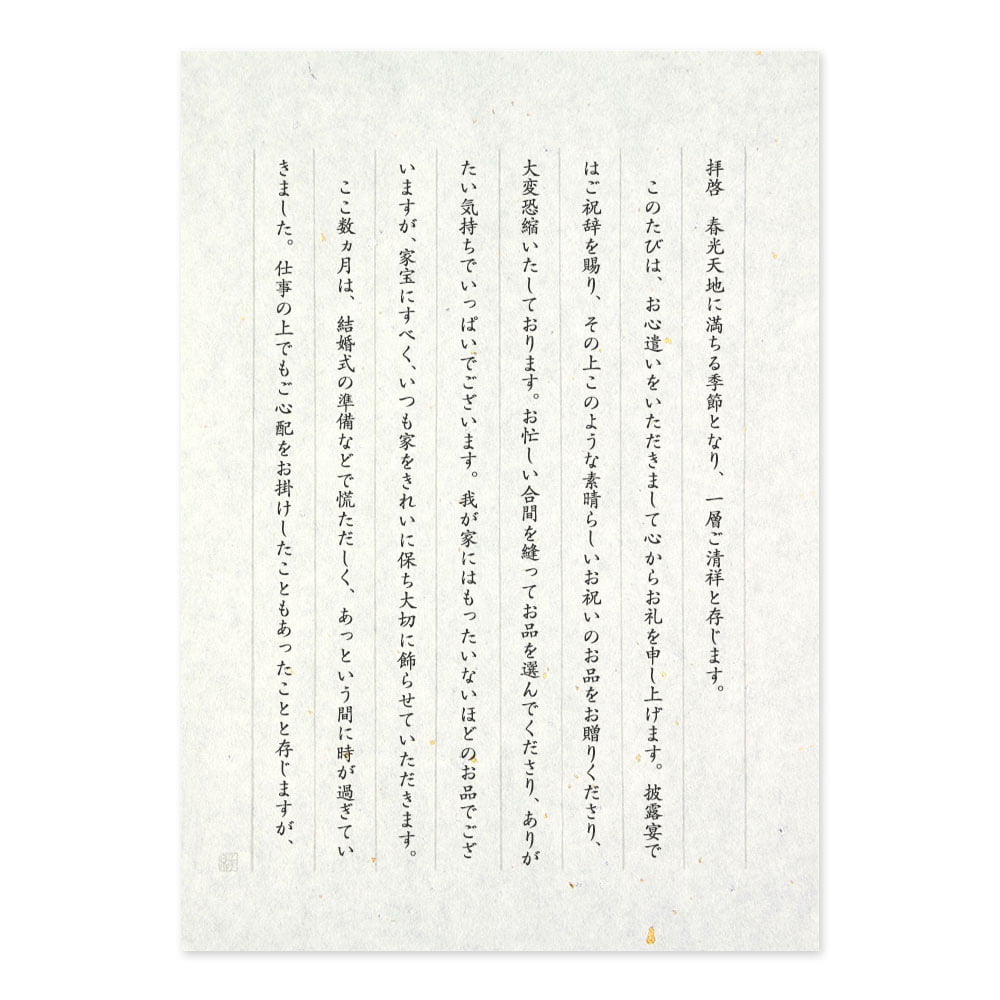 拝啓　春光天地に満ちる季節となり、一層ご清祥と存じます。
　このたびは、お心遣いをいただきまして心からお礼を申し上げます。披露宴で
はご祝辞を賜り、その上このような素晴らしいお祝いのお品をお贈りくださり、
大変恐縮いたしております。お忙しい合間を縫ってお品を選んでくださり、ありが
たい気持ちでいっぱいでございます。我が家にはもったいないほどのお品でござ
いますが、家宝にすべく、いつも家をきれいに保ち大切に飾らせていただきます。
　ここ数ヵ月は、結婚式の準備などで慌ただしく、あっという間に時が過ぎてい
きました。仕事の上でもご心配をお掛けしたこともあったことと存じますが、